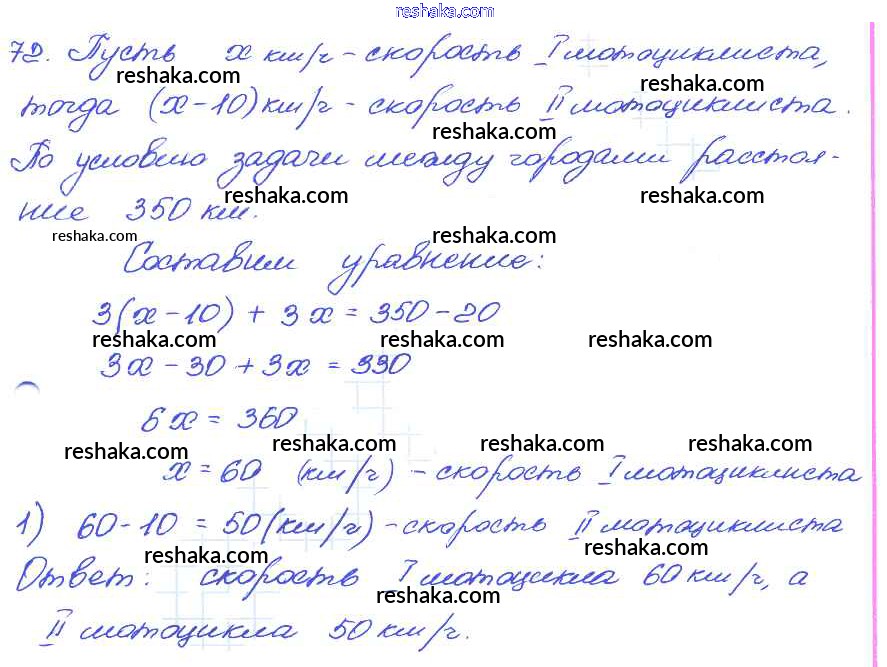 reshaka.com
72. Пусть x км/ч - скорость I мотоциклиста,
reshaka.com reshaka.com
тогда (x-10) км/ч - скорость II мотоциклиста.
reshaka.com
По условию задачи между городами расстоя-
reshaka.com reshaka.com
ние 350 км.
reshaka.com reshaka.com
Составим уравнение:
3(x-10) + 3x = 350-20
reshaka.com reshaka.com reshaka.com
3x - 30 + 3x = 330
6x = 360
reshaka.com reshaka.com reshaka.com reshaka.com
x = 60 (км/ч) - скорость I мотоциклиста
1) 60-10 = 50 (км/ч) - скорость II мотоциклиста
reshaka.com reshaka.com
Ответ: скорость I мотоцикла 60 км/ч, а
reshaka.com
II мотоцикла 50 км/ч.